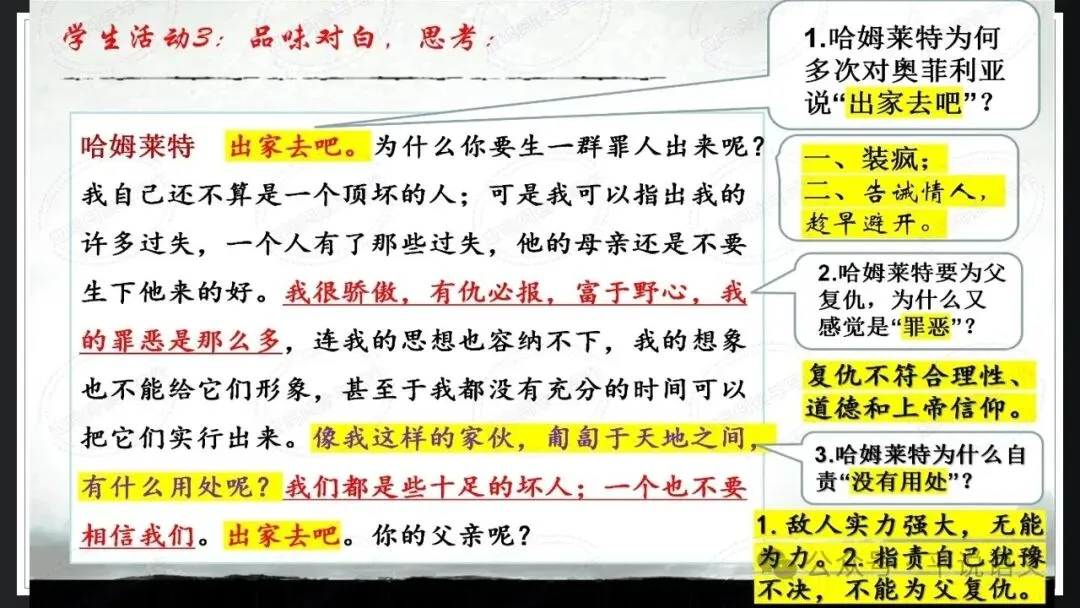 学生活动3：品味对白，思考：
哈姆莱特 出家去吧。为什么你要生一群罪人出来呢？
我自己还不算是一个顶坏的人；可是我可以指出我的
许多过失，一个人有了那些过失，他的母亲还是不要
生下他来的好。我很骄傲，有仇必报，富于野心，我
的罪恶是那么多，连我的思想也容纳不下，我的想象
也不能给它们形象，甚至于我都没有充分的时间可以
把它们实行出来。像我这样的家伙，匍匐于天地之间，
有什么用处呢？我们都是些十足的坏人；一个也不要
相信我们。出家去吧。你的父亲呢？
1.哈姆莱特为何
多次对奥菲利亚
说“出家去吧”？
一、装疯；
二、告诫情人，
趁早避开。
2.哈姆莱特要为父
复仇，为什么又
感觉是“罪恶”？
复仇不符合理性、
道德和上帝信仰。
3.哈姆莱特为什么自
责“没有用处”？
1. 敌人实力强大，无能
为力。2. 指责自己犹豫
不决，不能为父复仇。